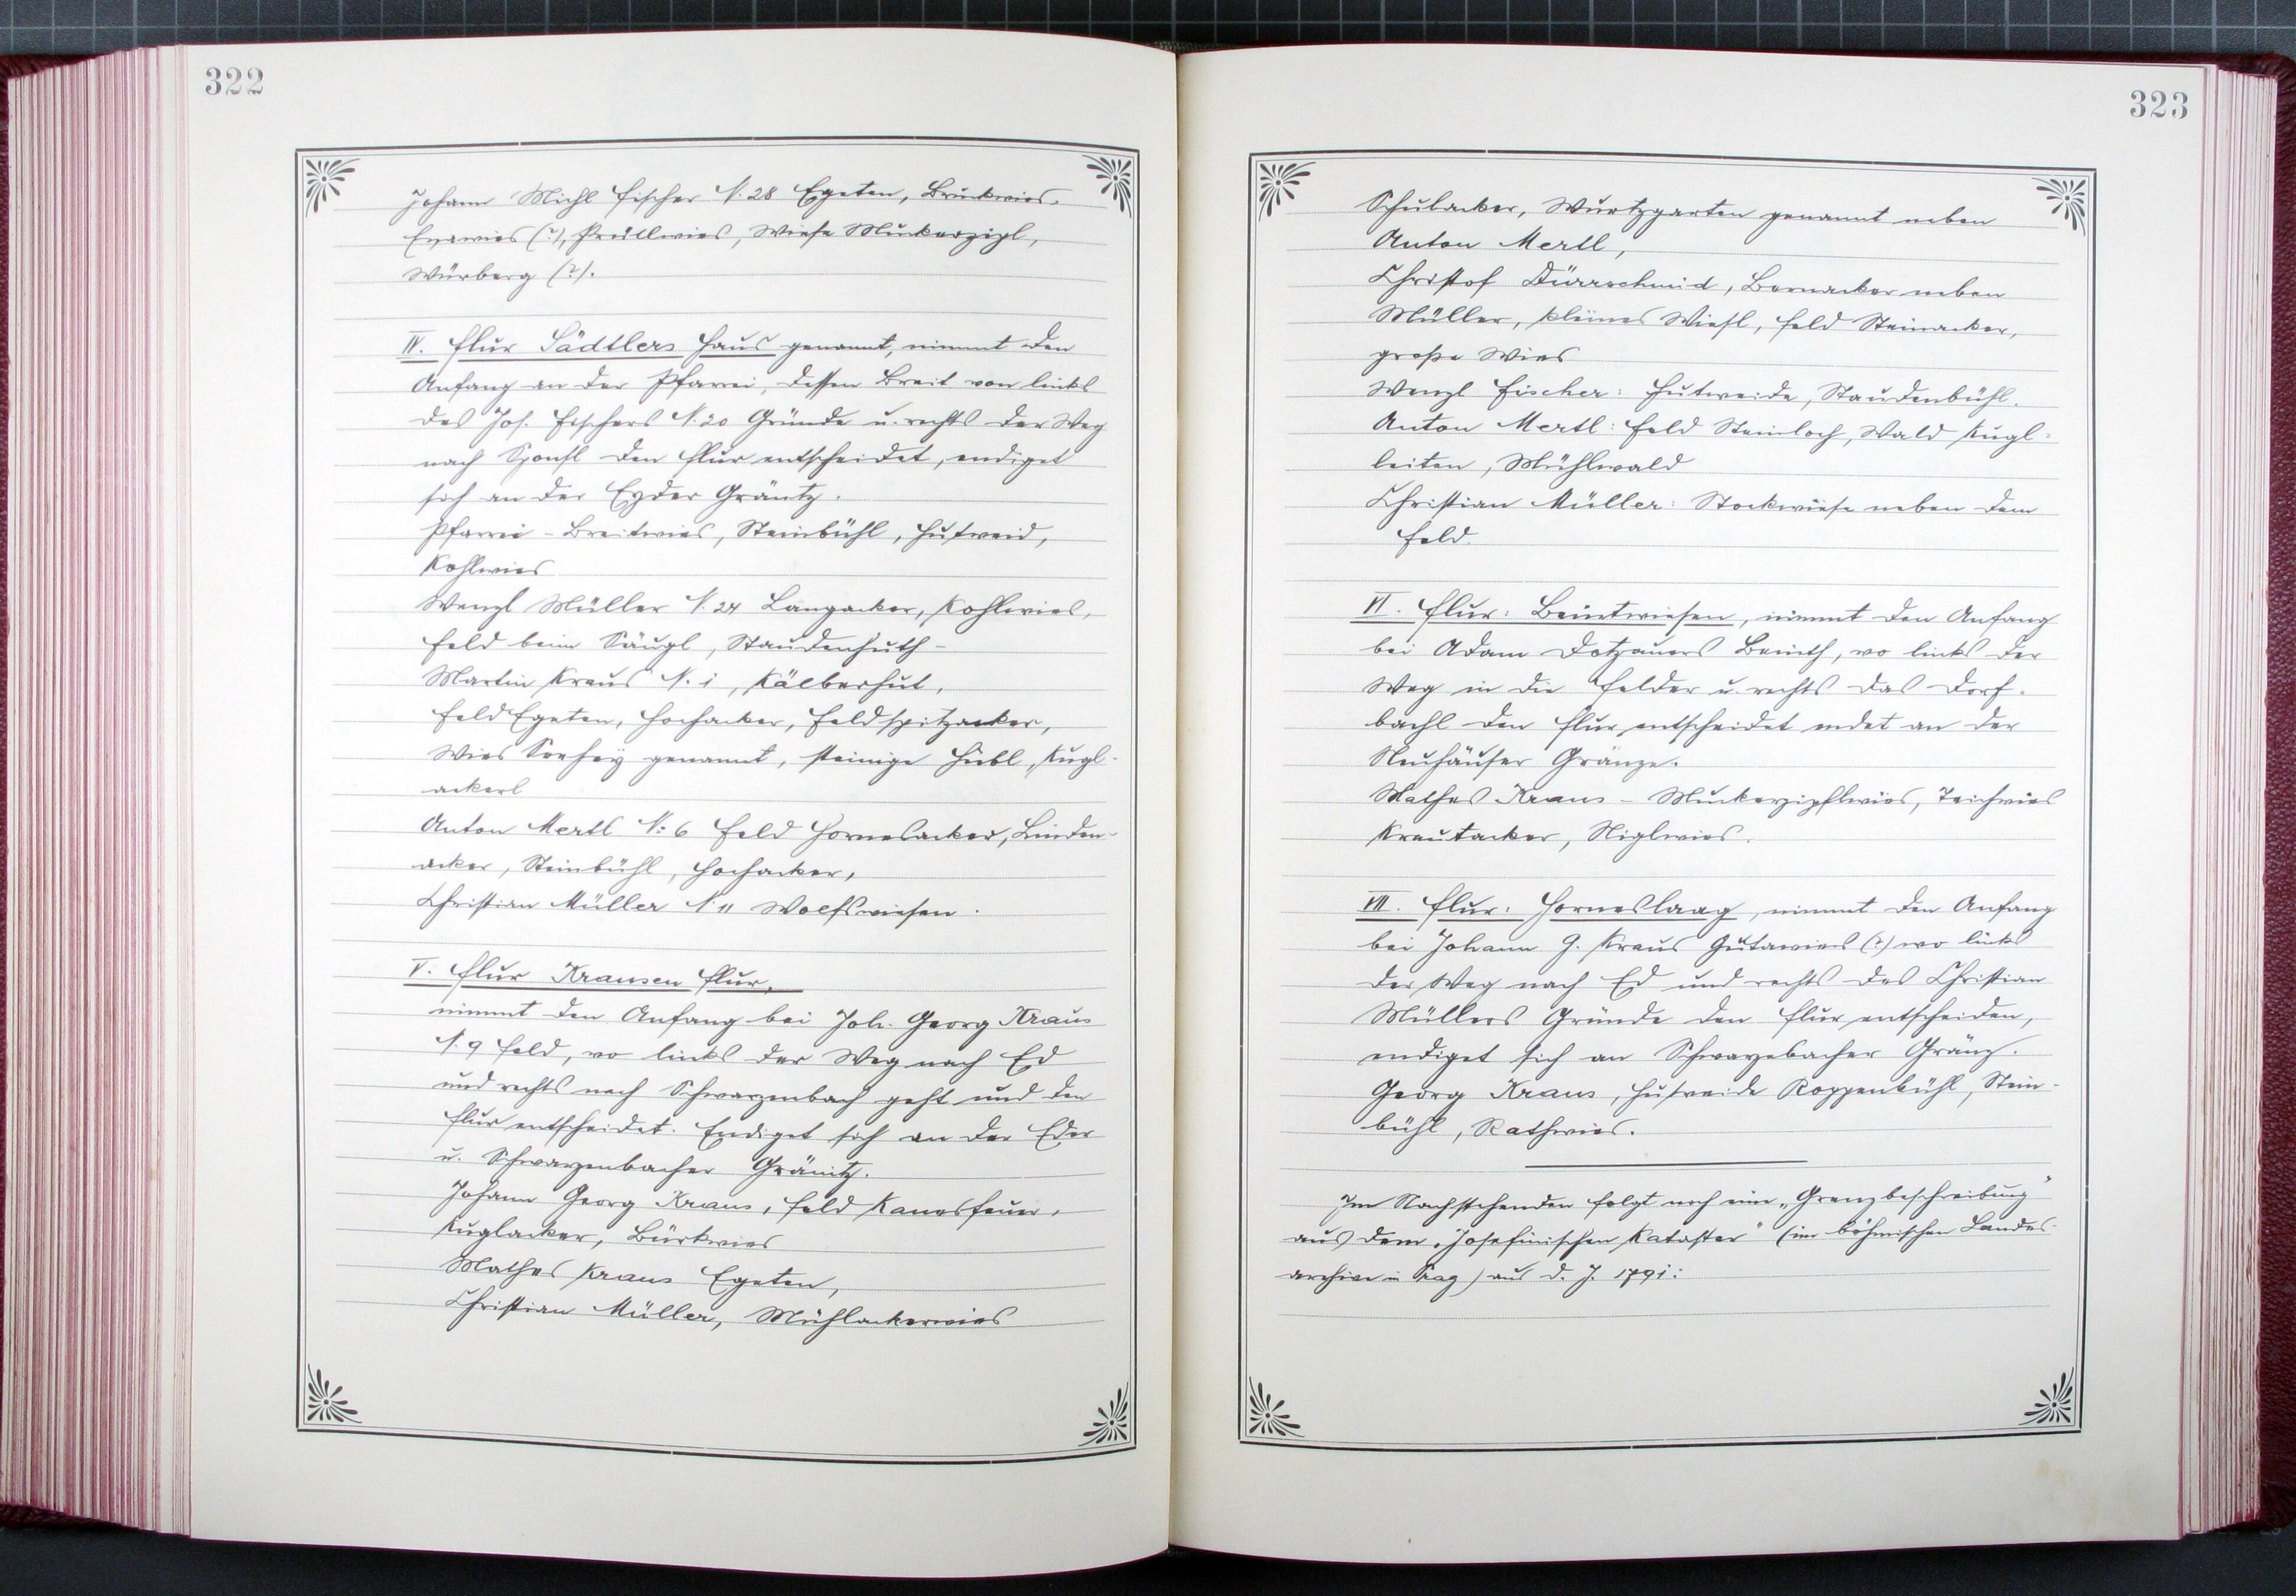 322
Johann Michl Fischer N. 28 Egeten, Bruckwies,
(?), Prüllwies, Wiese Muckerzipl,
Würberg (?).
IV. Flur Sädtlers Haus genannt, nimmt den
Anfang an der Pfarrei, dessen Breit von links
des Jos. Fischers N. 20 Gründe u. rechts der Weg
nach den Flur entscheidet, endiget
sich an der Eyder Gräntz.
Pfarrei - Breitwies, Steinbühl, Hutweid,
Kohlwies
Wenzl Müller N. 24 Langacker, Kohlwies,
Feld beim Säugl, Staudenhuth -
Martin Kraus N. 1, Kälberhut,
Feld Egeten, Hochacker, Feld Spitzacker,
Wies genannt, steinige Hübl, Kugl-
ackerl
Anton Mertl N: 6 Feld Hornesacker, Linden-
acker, Steinbühl, Hochacker,
Christian Müller N: 11 Wolfswiesen.
V. Flur Krausen Flur,
nimmt den Anfang bei Joh. Georg Kraus
N. 9 Feld, wo links der Weg nach Ed
und rechts nach Schwarzenbach geht und den
Flur entscheidet. Endiget sich an der Eder
u. Schwarzenbacher Gränitz.
Johann Georg Kraus, Feld
Kuglacker, Bürkwies
Mathes Kraus Egeten,
Christian Müller, Mühlackerwies
323
Schulacker, Wurtzgarten genannt neben
Anton Mertl,
Christof Dürrschmid, Bernacker neben
Müller, kleines Wiesl, Feld Steinacker,
große Wies
Wenzl Fischer: Hutweide, Staudenbühl.
Anton Mertl: Feld Steinloch, Wald Kugl-
leiten, Mühlwald
Christian Müller: Stockwiese neben dem
Feld.
VI. Flur: Beintwiesen, nimmt den Anfang
bei Adam Dotzauers Beinth, wo links der
Weg in die Felder u. rechts das Dorf-
bachl den Flur entscheidet endet an der
Neuhäuser Gränze.
Mathes Kraus - Muckerzipflwies, Teichwies
Krautacker, Niglwies.
VII. Flur: Horneslaag, nimmt den Anfang
bei Johann G. Kraus Gutawies (?) wo links
der Weg nach Ed und rechts des Christian
Müllers Gründe den Flur entscheiden,
endiget sich an Schwarzebacher Gränz.
Georg Kraus, Hutweide Roppenbühl, Stein-
bühl, Rathwies.
Im Nachstehenden folgt noch eine „Grenzbeschreibung"
aus dem „Josefinischen Kataster" (im böhmischen Landes-
archive in Prag) aus d. J. 1791: